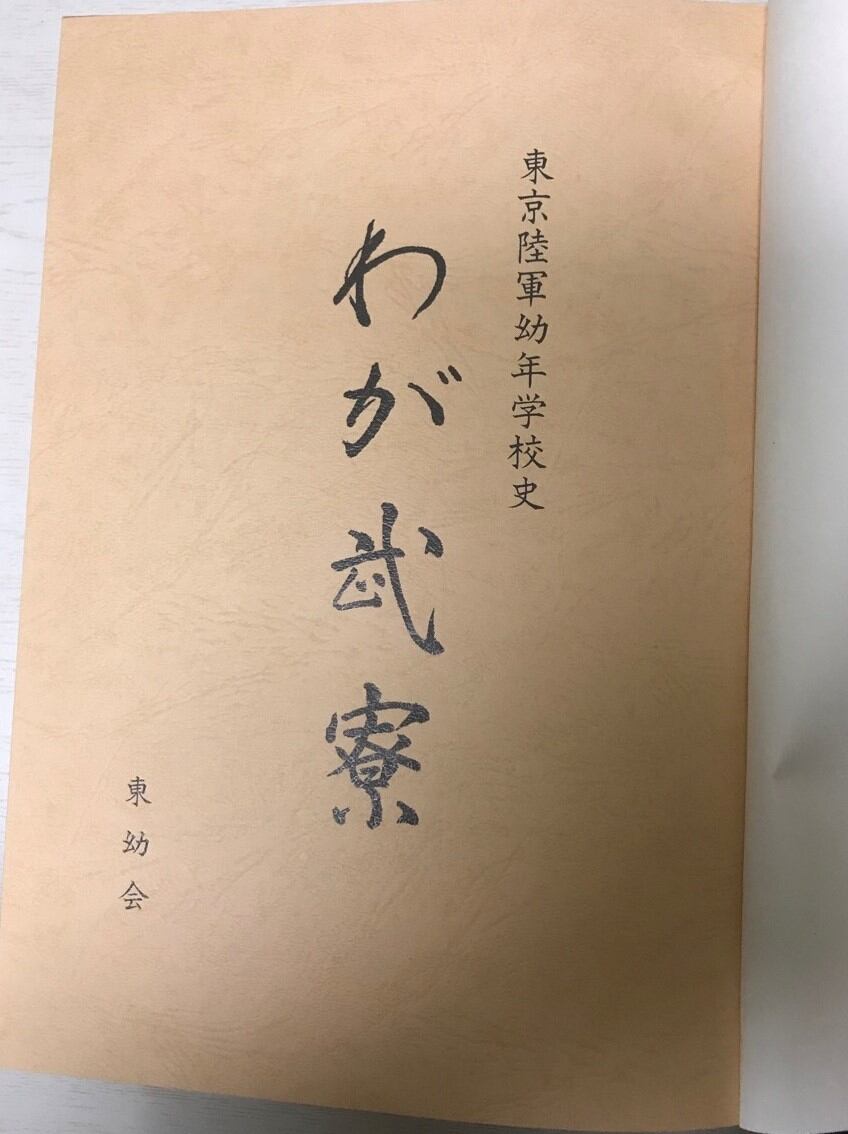 東京陸軍幼年学校史
わが武寮
東幼会